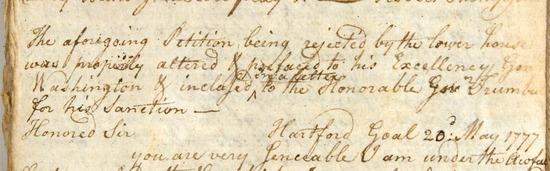 The aforegoing Petition being rejected by the lower house
was properly altered & prefaced to his Excellency Gen
Washington & inclosed in a letter to the Honorable Gov Trumbu
for his Sanction —
Honored Sir Hartford Goal 20d May 1777
you are very Senceable I am under the Awful